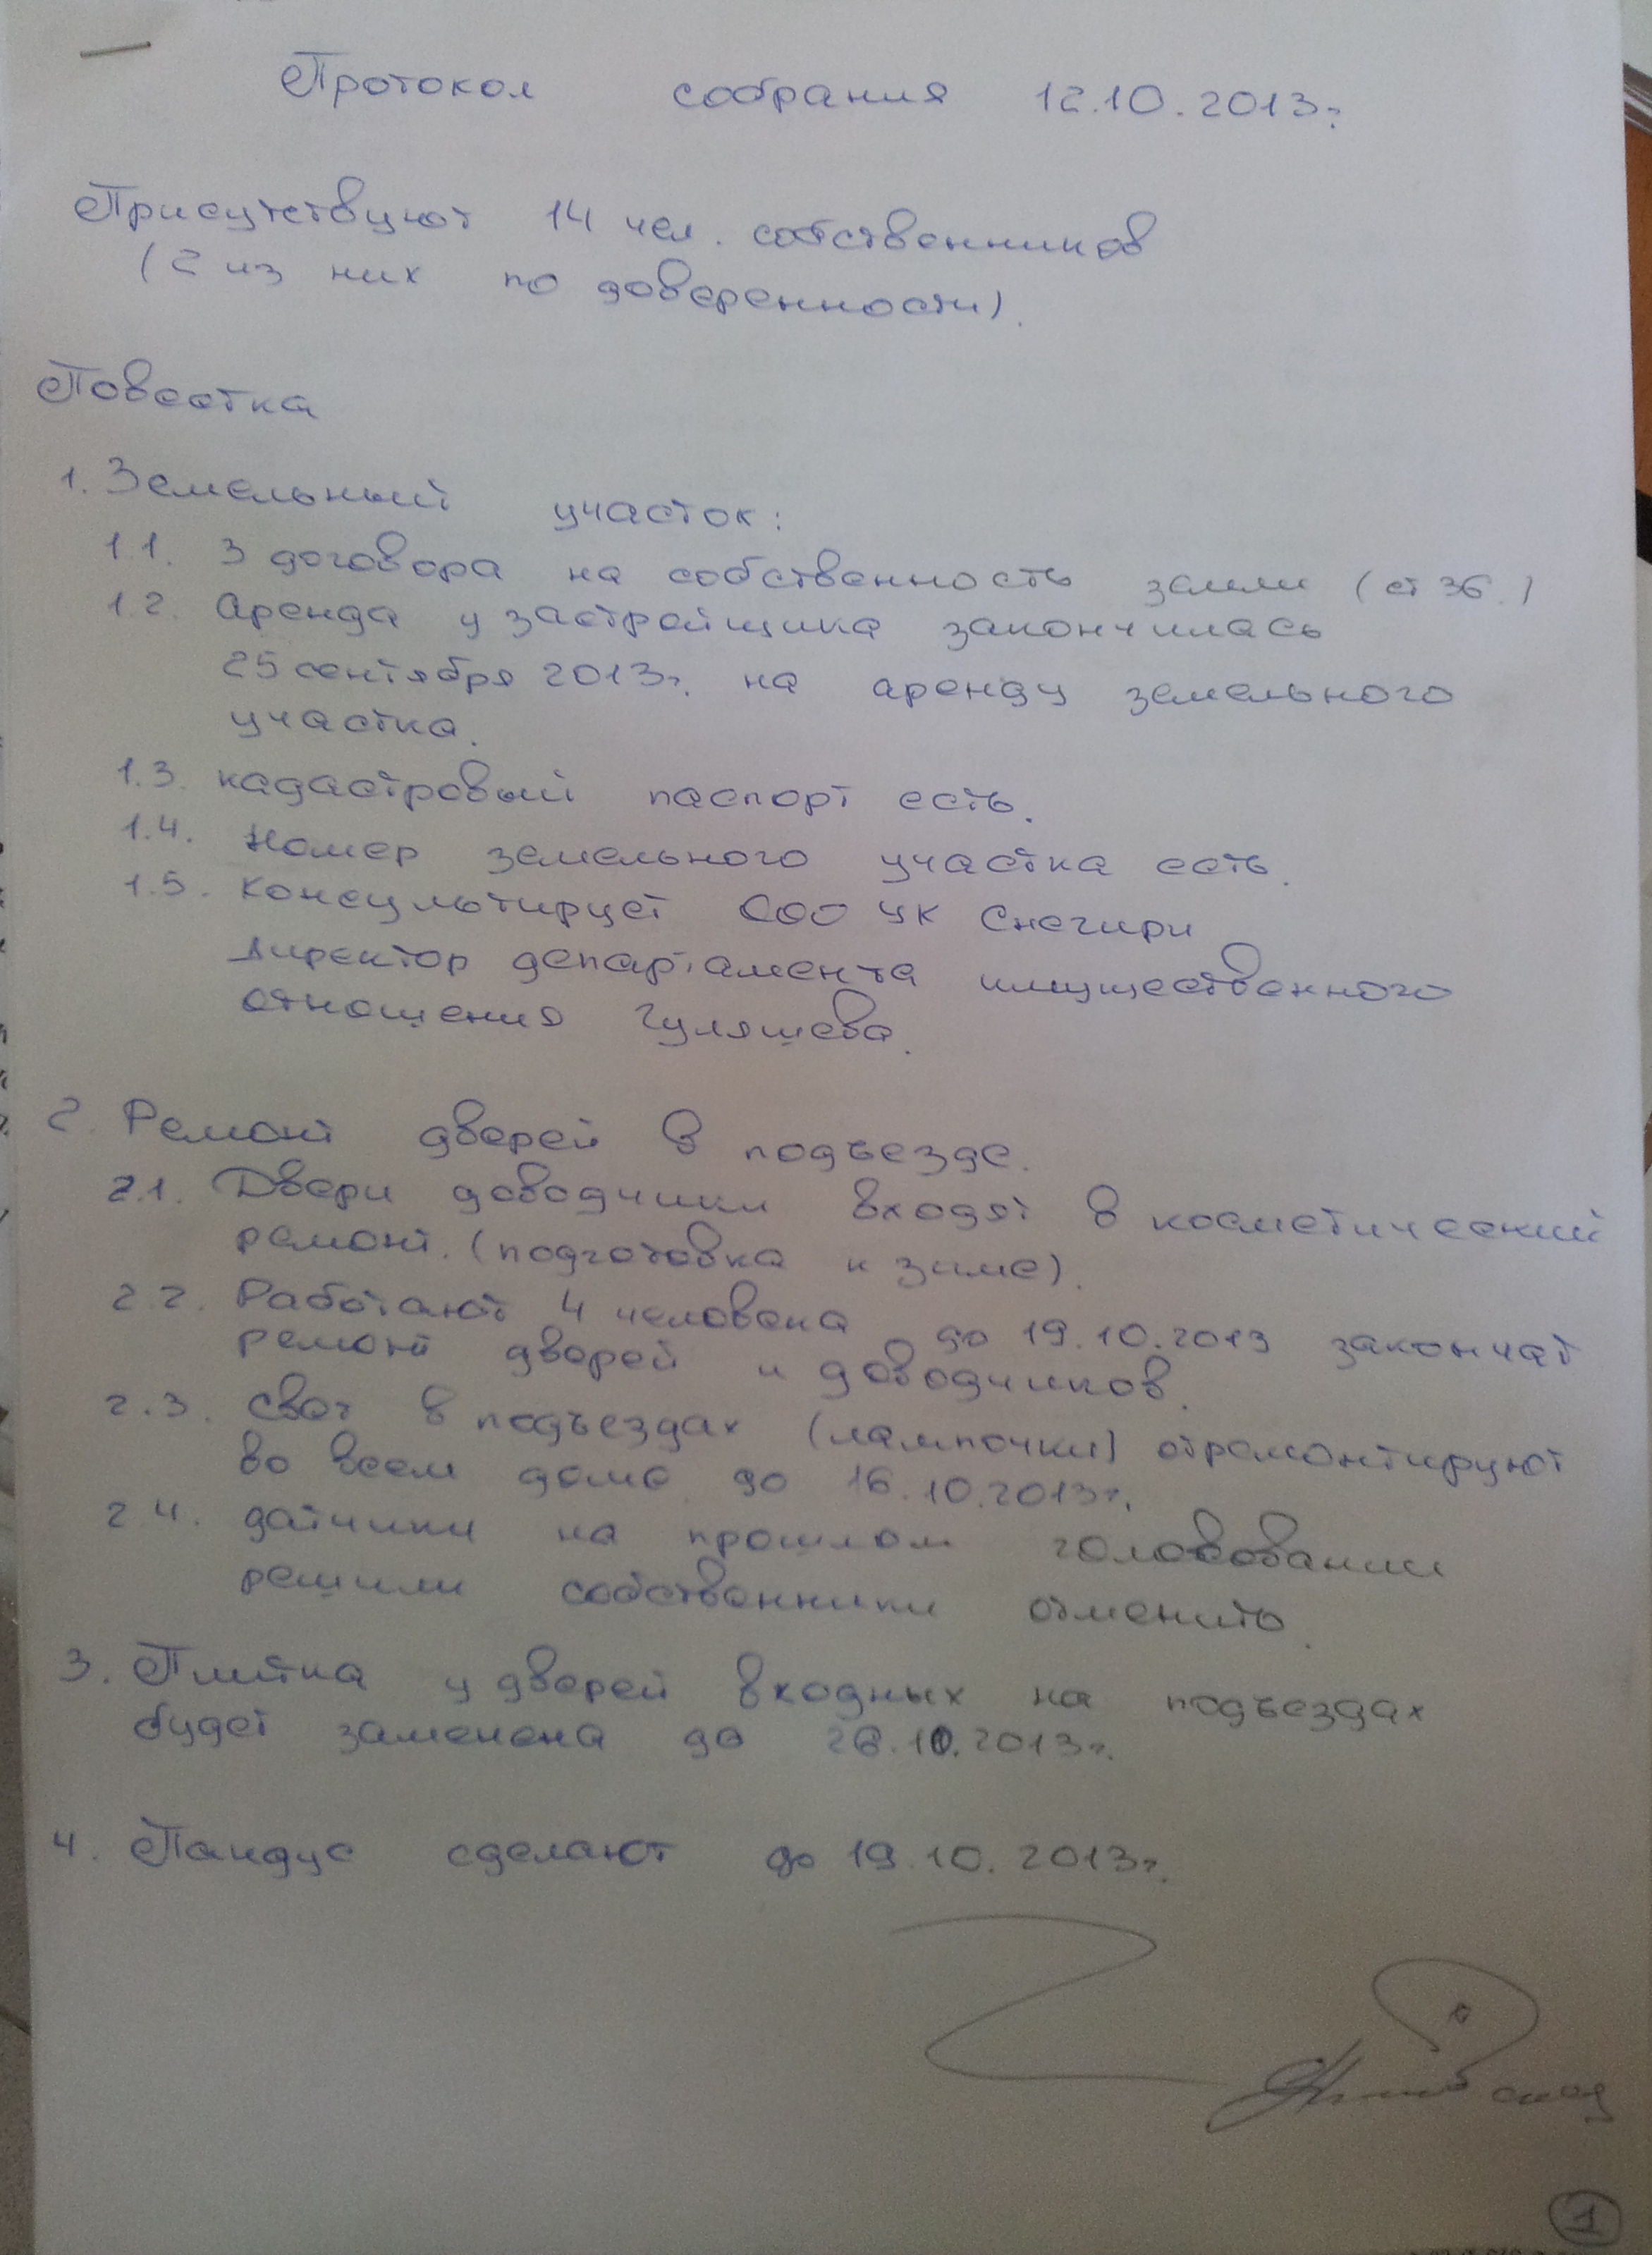 Протокол собрания 12.10.2013г.
Присутствуют 14 чел. собственников
(2 из них по доверенности).
Повестка
1. Земельный участок:
1.1. 3 договора на собственность земли (ст 36.)
1.2. Аренда у застройщика закончилась
25 сентября 2013г. на аренду земельного
участка.
1.3. кадастровый паспорт есть.
1.4. Номер земельного участка есть.
1.5. Консультирует ООО УК Снегири
директор департамента имущественного
отношения Гуляшева.
2. Ремонт дверей в подъезде.
2.1. Двери доводчики входят в косметический
ремонт. (подготовка к зиме).
2.2. Работают 4 человека до 19.10.2013 закончат
ремонт дверей и доводчиков.
2.3. Свет в подъездах (лампочки) отремонтируют
во всем доме до 16.10.2013г.
2.4. датчики на прошлом голосовании
решили собственники отменить.
3. Плитка у дверей входных на подъездах
будет заменена до 26.10.2013г.
4. Пандус сделают до 19.10.2013г.
1